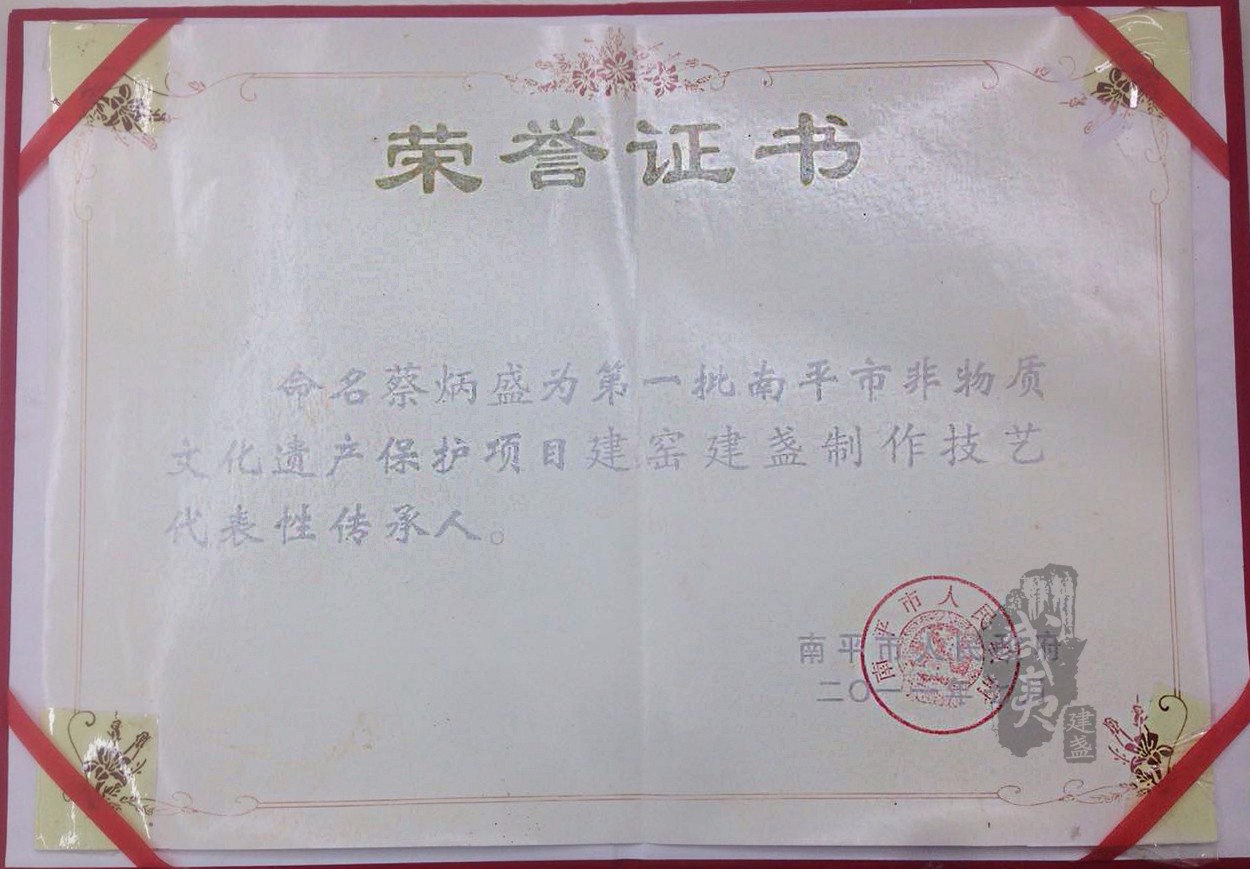 荣誉证书
命名蔡炳盛为第一批南平市非物质
文化遗产保护项目建窑建盏制作技艺
代表性传承人。
南平市人民政府
二〇一一年
南平市人民政府
武夷
建盏